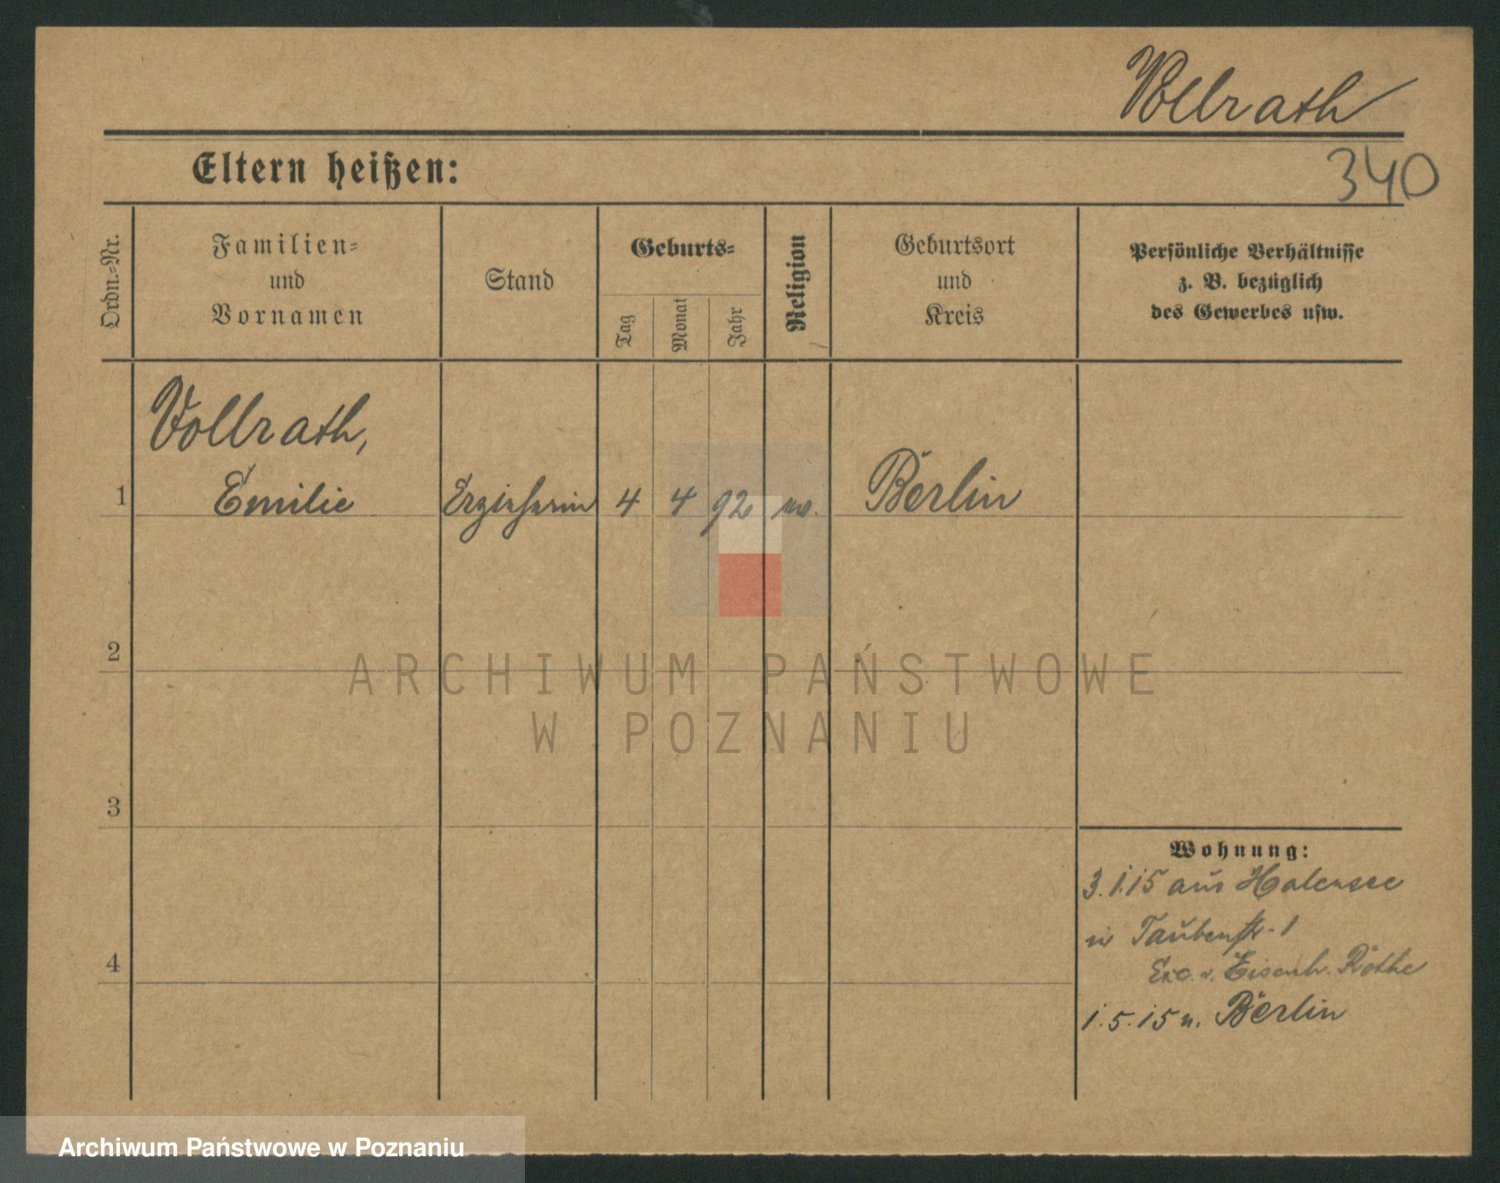 Vollrath
Eltern heißen:
340
Ordn.-Nr.
Familien-
und
Vornamen
Stand
Geburts-
Tag
Monat
Jahr
Religion
Geburtsort
und
Kreis
Persönliche Verhältnisse
z. B. bezüglich
des Gewerbes usw.
Vollrath,
1 Emilie Erzieherin 4 4 92 Berlin
2
ARCHIWUM PAŃSTWOWE
W POZNANIU
3
Wohnung:
3.1.15 aus Halensee
Taubenstr. 1
4
Exc. v. Eisenh. Rothe
1.5.15 n. Berlin
Archiwum Państwowe w Poznaniu